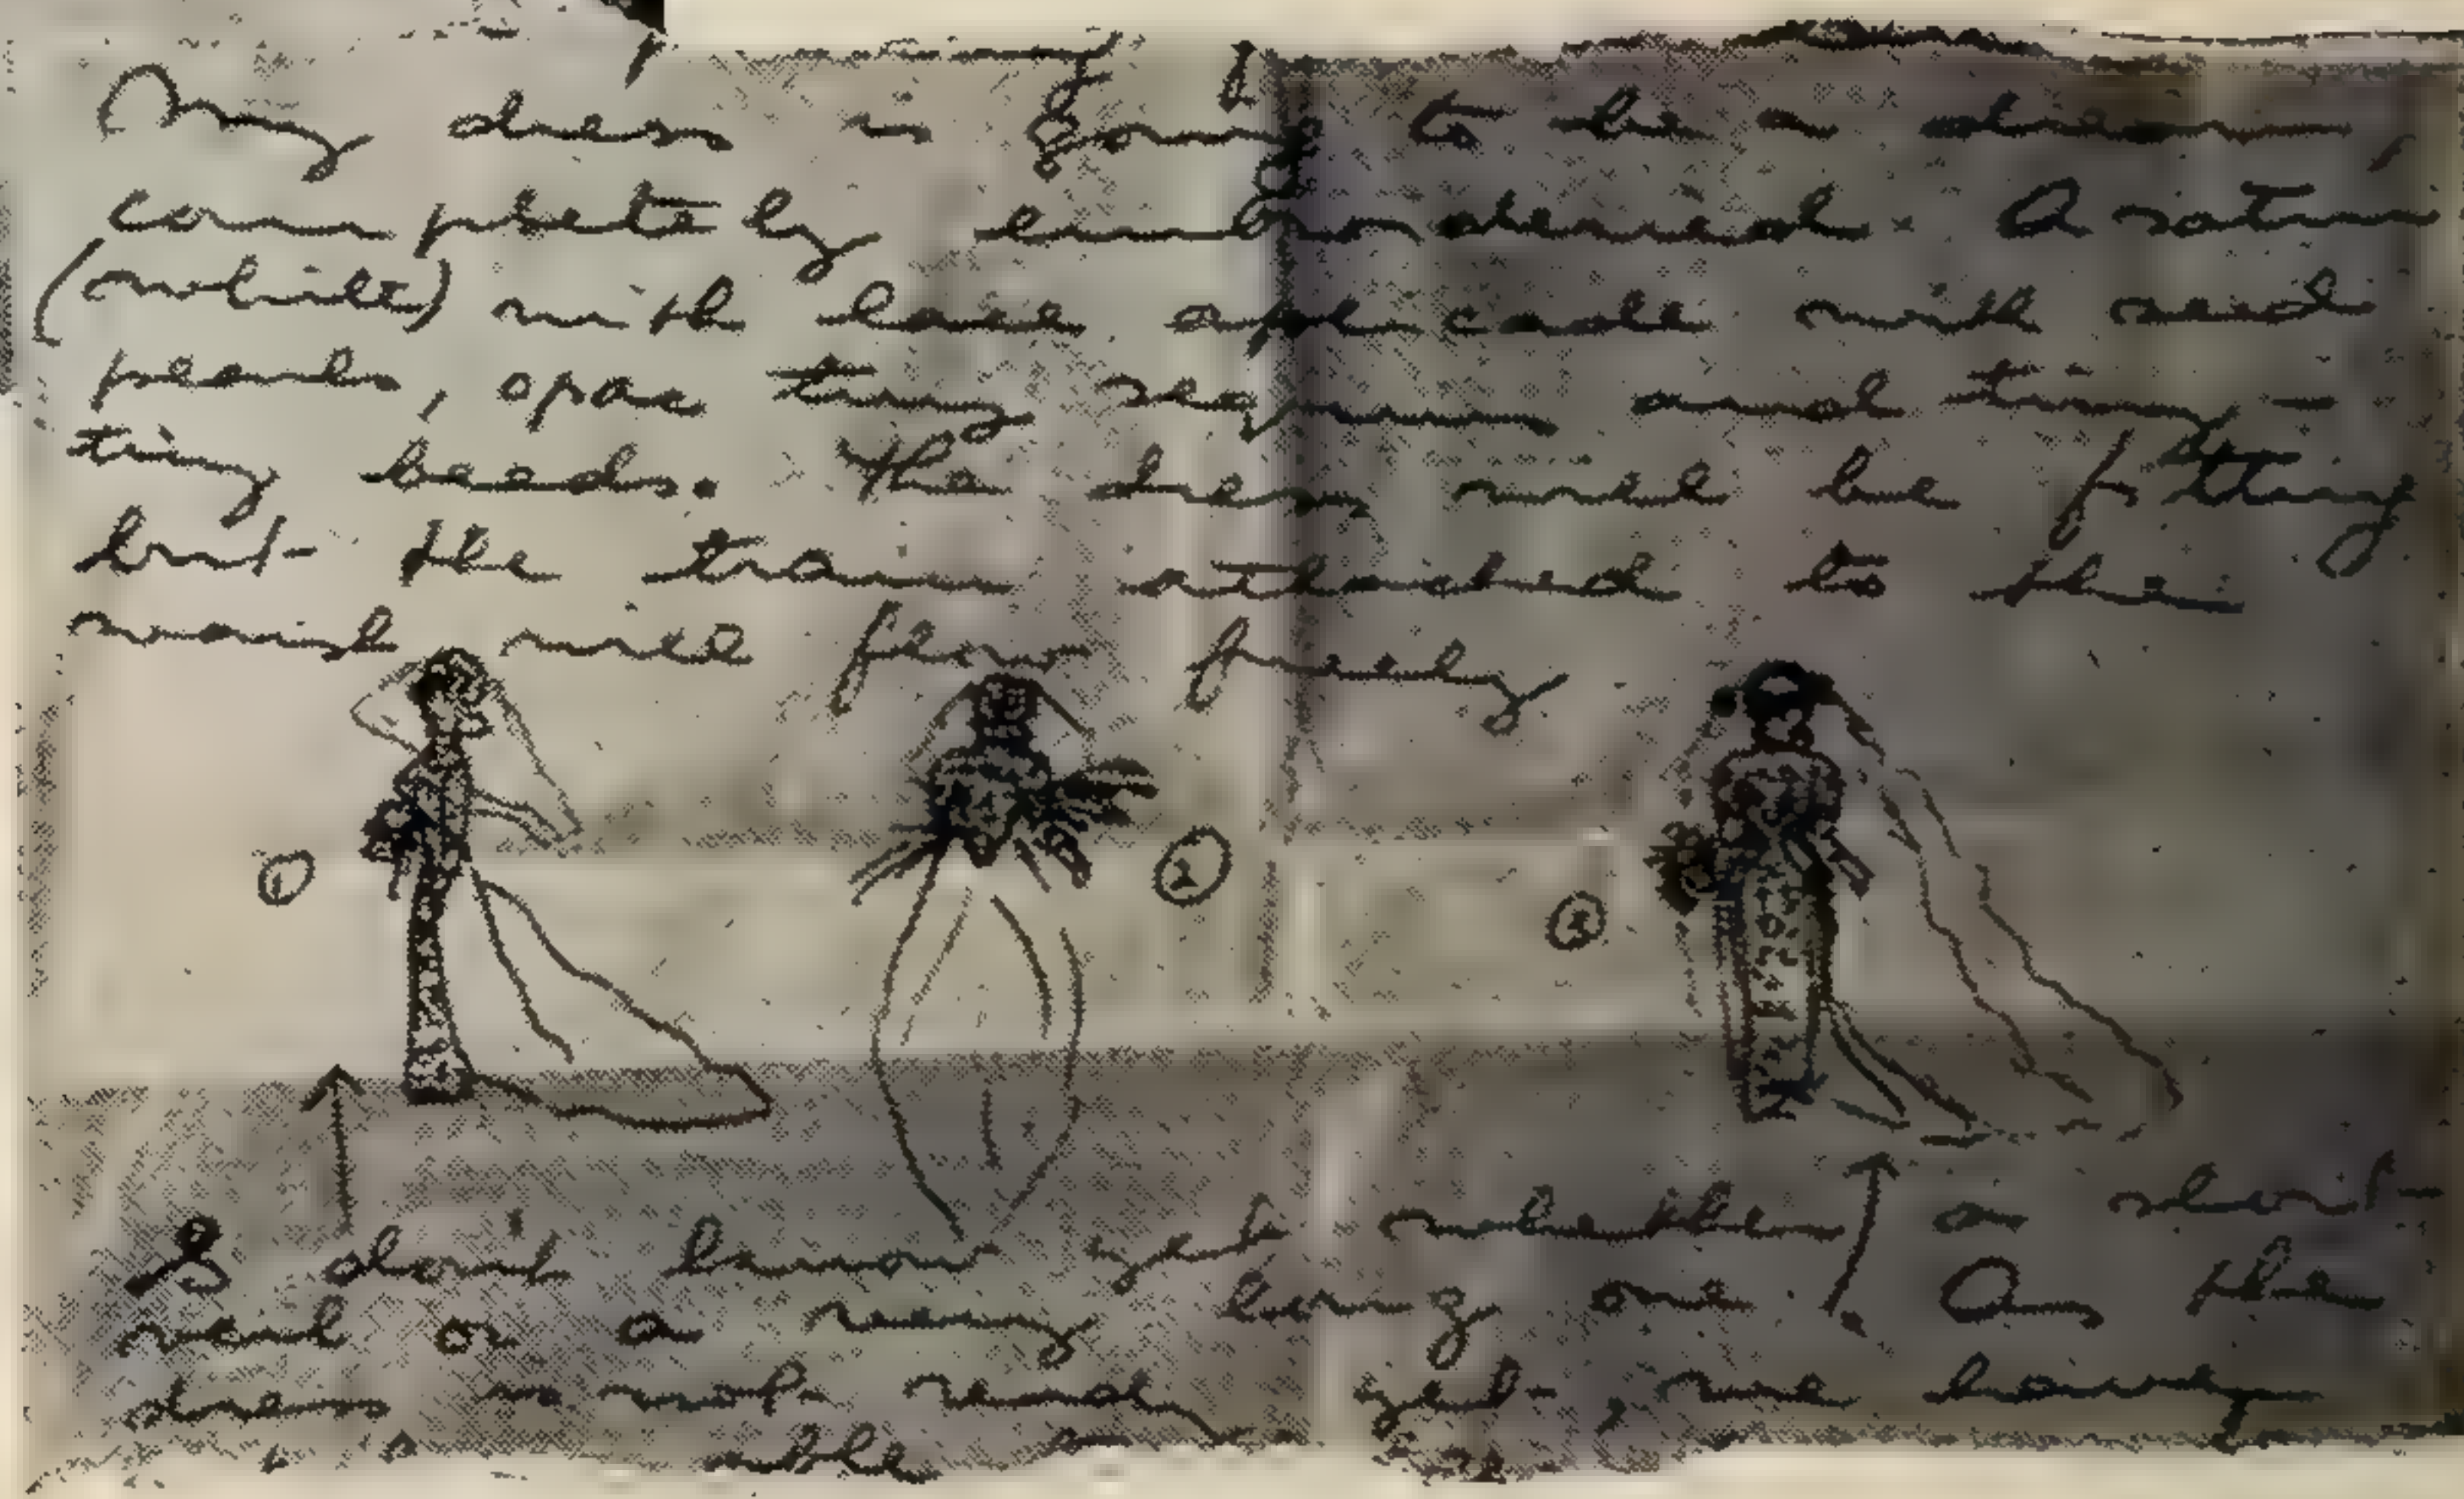 My dress is going to be a dream,
completely embroidered. A satin
(white) with lace applicade with seed
pearls, opac tiny sequins and tiny -
tiny beads. The dress will be fitting
but the train attached to the
waist will flow freely
①
②
③
I don't know yet whether a short
veil or a very long one. As the
dress is not ready yet, we have